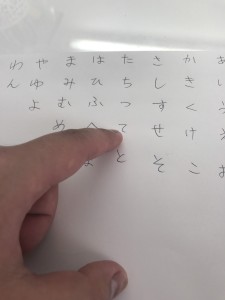 かきくけこ
さしすせそ
たちつてと
はひふへ
まみむめ
やゆよ
わん